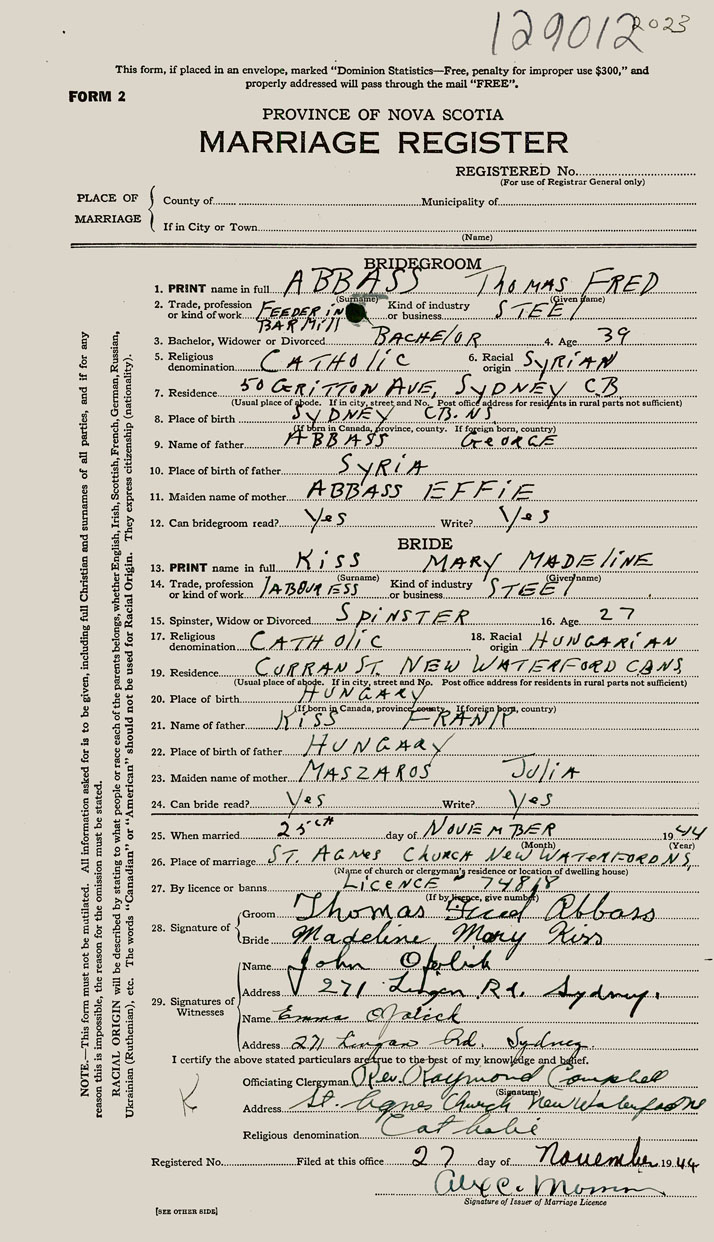 129012 2023
This form, if placed in an envelope, marked "Dominion Statistics—Free, penalty for improper use $300," and
properly addressed will pass through the mail "FREE".
FORM 2
PROVINCE OF NOVA SCOTIA
MARRIAGE REGISTER
REGISTERED No.
(For use of Registrar General only)
PLACE OF MARRIAGE
County of Municipality of
If in City or Town
(Name)
BRIDEGROOM
1. PRINT name in full ABBASS THOMAS FRED
(Surname) (Given name)
2. Trade, profession or kind of work FEEDER IN BAR MILL Kind of industry or business STEEL
3. Bachelor, Widower or Divorced BACHELOR 4. Age 39
5. Religious denomination CATHOLIC 6. Racial origin SYRIAN
7. Residence 50 GRITTON AVE, SYDNEY CB
(Usual place of abode. If in city, street and No. Post office address for residents in rural parts not sufficient)
8. Place of birth SYDNEY CB. NS
(If born in Canada, province, county. If foreign born, country)
9. Name of father ABBASS GEORGE
10. Place of birth of father SYRIA
11. Maiden name of mother ABBASS EFFIE
12. Can bridegroom read? Yes Write? Yes
BRIDE
13. PRINT name in full KISS MARY MADELINE
(Surname) (Given name)
14. Trade, profession or kind of work LABOURESS Kind of industry or business STEEL
15. Spinster, Widow or Divorced SPINSTER 16. Age 27
17. Religious denomination CATHOLIC 18. Racial origin HUNGARIAN
19. Residence CURRAN ST. NEW WATERFORD CB NS
(Usual place of abode. If in city, street and No. Post office address for residents in rural parts not sufficient)
20. Place of birth HUNGARY
(If born in Canada, province, county. If foreign born, country)
21. Name of father KISS FRANK
22. Place of birth of father HUNGARY
23. Maiden name of mother MASZAROS JULIA
24. Can bride read? Yes Write? Yes
25. When married 25th day of NOVEMBER 1944
(Month) (Year)
26. Place of marriage ST. AGNES CHURCH NEW WATERFORD NS,
(Name of church or clergyman's residence or location of dwelling house)
27. By licence or banns LICENCE - 74818
(If by licence, give number)
28. Signature of
Groom Thomas Fred Abbass
Bride Madeline Mary Kiss
29. Signatures of Witnesses
Name John
Address 271 Lingan Rd. Sydney.
Name Emma
Address 271 Lingan Rd. Sydney
I certify the above stated particulars are true to the best of my knowledge and belief.
Officiating Clergyman Rev. Raymond Campbell
(Signature)
Address St. Agnes Church New Waterford NS
Religious denomination Catholic
K
Registered No. Filed at this office 27 day of November 1944
Alex C.
Signature of Issuer of Marriage Licence
[SEE OTHER SIDE]
NOTE.—This form must not be mutilated. All information asked for is to be given, including full Christian and surnames of all parties, and if for any
reason this is impossible, the reason for the omission must be stated.
RACIAL ORIGIN will be described by stating to what people or race each of the parents belongs, whether English, Irish, Scottish, French, German, Russian,
Ukrainian (Ruthenian), etc. The words "Canadian" or "American" should not be used for Racial Origin. They express citizenship (nationality).